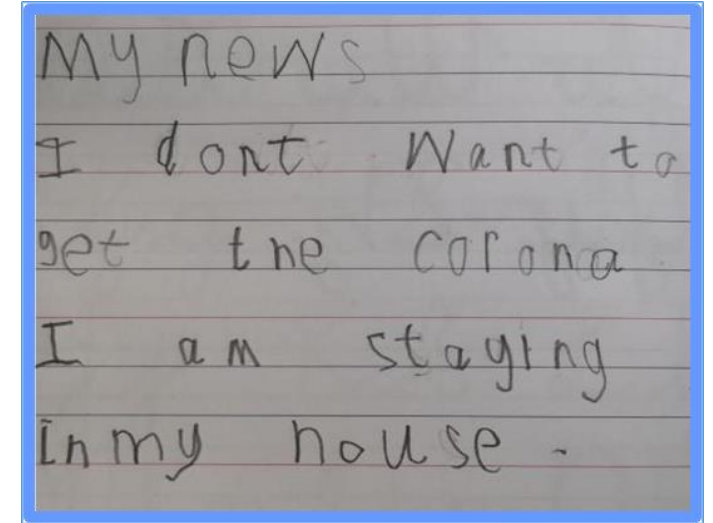 My news
I dont Want to
get the corona
I am staying
in my house.